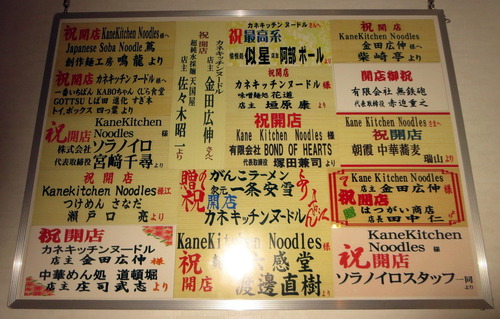 祝開店
KaneKitchen Noodles様へ
Japanese Soba Noodle 蔦
創作麺工房 鳴龍 より
祝開店
カネキッチン ヌードル様へ
一番いちばん KABOちゃん くじら食堂
GOTTSU しば田 進化 すぎ本
トイ・ボックス 四つ葉 より
祝開店
KaneKitchen
Noodles 様
株式会社 ソラノイロ
代表取締役 宮﨑千尋 より
祝開店
Kanekitchen Noodles 様江
つけめん さなだ
瀬戸口 亮 より
祝開店
カネキッチンヌードル
店主 金田広伸 様
中華めん処 道頓堀
店主 庄司武志 より
祝開店
カネキッチン ヌードル
店主 金田広伸 さん江
超純水採麺 天国屋
店主 佐々木昭二 より
カネキッチン ヌードルさんへ
祝 最高系
似星 店主 阿部ポール より
祝開店
カネキッチン ヌードル 様
味噌麺処 花道
店主 垣原康 より
祝開店
Kane Kitchen Noodles 様
有限会社 BOND OF HEARTS
代表取締役 塚田兼司 より
贈祝
がんこラーメン
家元 一条安雪 より
開店
カネキッチンヌードル
さん江
KaneKitchen Noodles 様
祝
感堂
渡邊直樹 より
祝開店
KaneKitchen Noodles
金田広伸 様
柴崎亭 より
開店御祝
有限会社 無鉄砲
代表取締役 赤迫重之
KaneKitchen Noodles 様
祝開店
朝霞 中華蕎麦
瑞山 より
KaneKitchen Noodles
店主 金田広伸 様
祝開店
はつがい商店
店長 田中仁 より
祝開店
KaneKitchen
Noodles 様
ソラノイロスタッフ一同 より